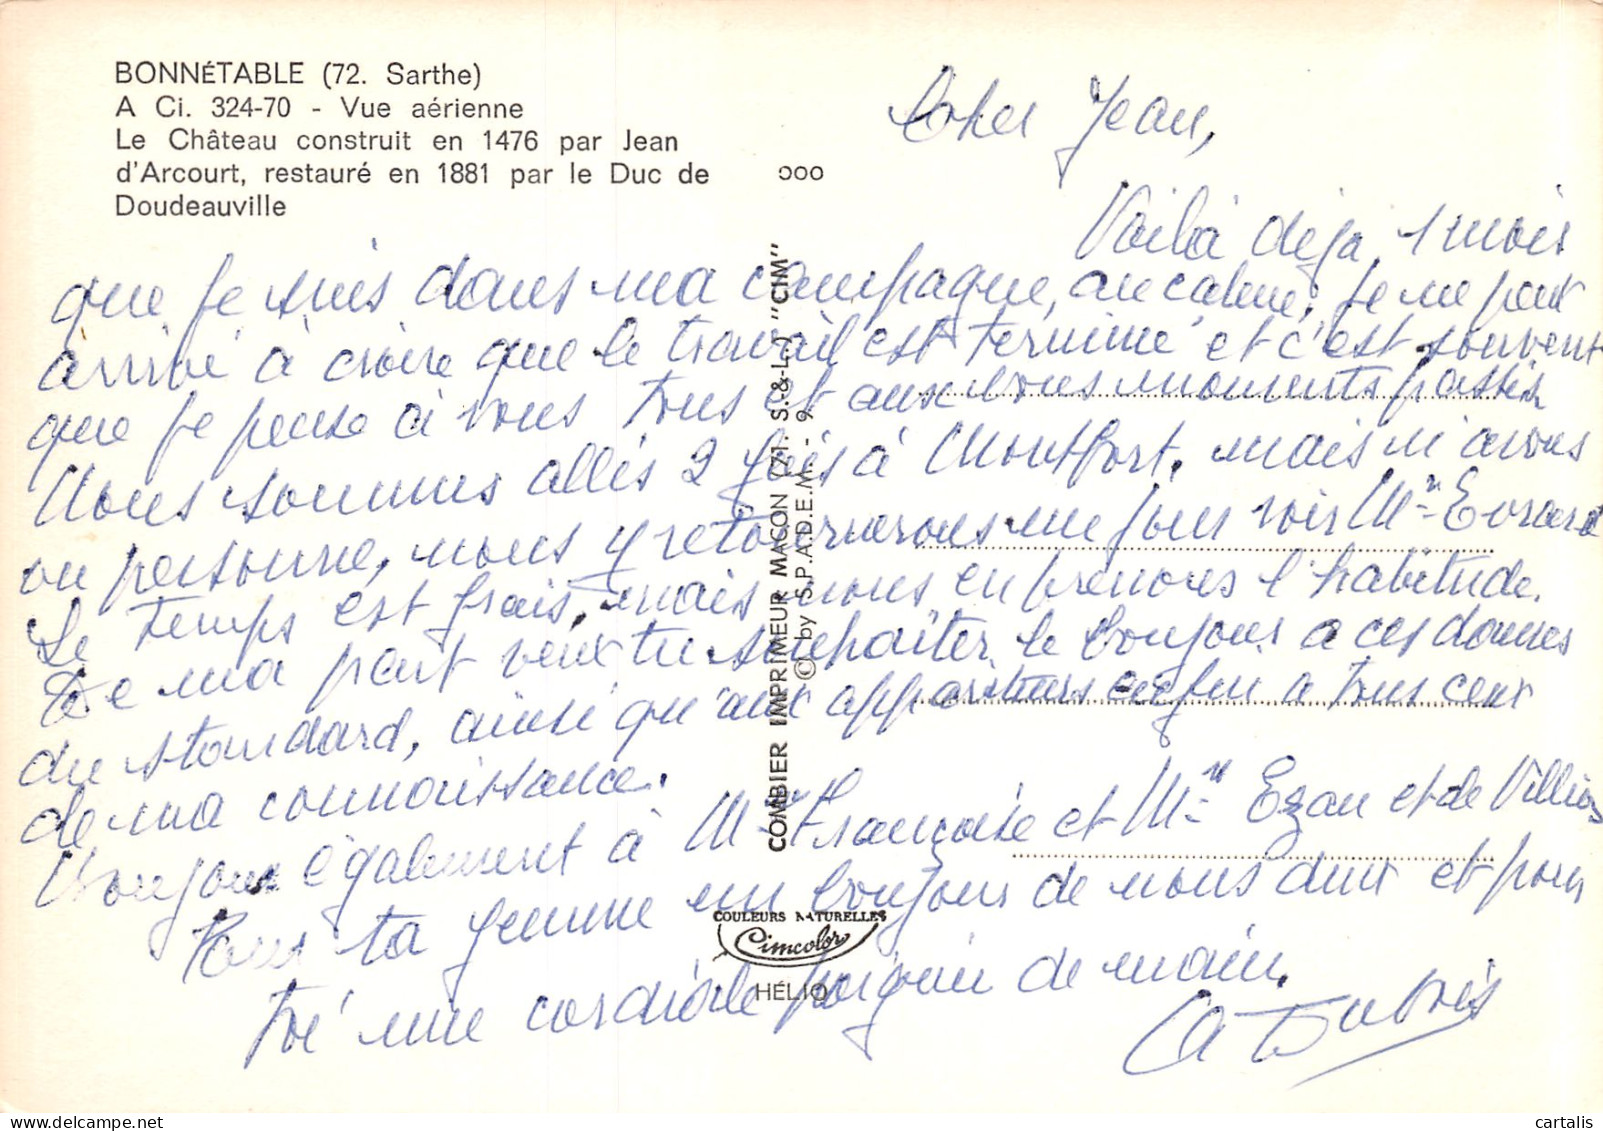 BONNÉTABLE (72. Sarthe)
A Ci. 324-70 - Vue aérienne
Le Château construit en 1476 par Jean
d'Arcourt, restauré en 1881 par le Duc de
Doudeauville
Cher Jean,
Voilà déjà 1 mois
que je suis dans ma campagne, au calme, je ne peux
arrivé à croire que le travail est terminé et c'est souvent
que je pense à vous tous et aux bons moments passés.
Nous sommes allés 2 fois à Montfort, mais n'avons
vu personne, nous y retournerons un jour voir Mr Evrard
Le temps est frais, mais nous en prenons l'habitude.
De ma part veux tu souhaiter le bonjour a ces dames
du standard, ainsi qu'aux apparteurs enfin a tous ceux
de ma connaissance.
Bonjour également à Me Françoise et Mr Ezan et de Villiers
Pour ta femme un bonjour de nous deux et pour
toi une cordiale poignée de main.
A Dubois
COMBIER IMPRIMEUR MACON (71. S.-&-L.) "CIM"
© by S.P.A.D.E.M. - 9
COULEURS NATURELLES
Cimcolor
HÉLIO
cartalis